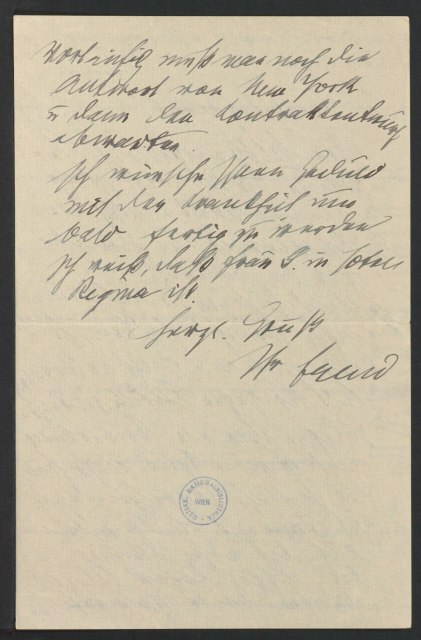 Vorläufig muß man noch die
Antwort von New York
u dann den Contractentwurf
abwarten.
Ich wünsche Ihnen Geduld
mit der Krankheit um
bald fertig zu werden
Ich weiß, daß Frau S. in Hotel
Regina ist.
Herzl. Gruß
Ihr
ÖSTERR. NATIONALBIBLIOTHEK
WIEN